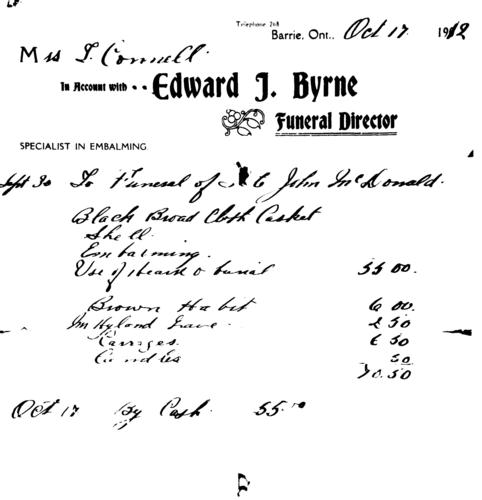 Telephone 268
Barrie, Ont., Oct 17 1912
Mrs T. Connell.
In Account with · · Edward J. Byrne
Funeral Director
SPECIALIST IN EMBALMING.
Sept 30 To Funeral of John McDonald.
Black Broad Cloth Casket
Shell.
Embalming.
Use of hearse & burial 55 00.
Brown Habit 6 00.
Grave
Carriges. 6 50
Candles 50
70.50
Oct 17 By Cash. 55.00